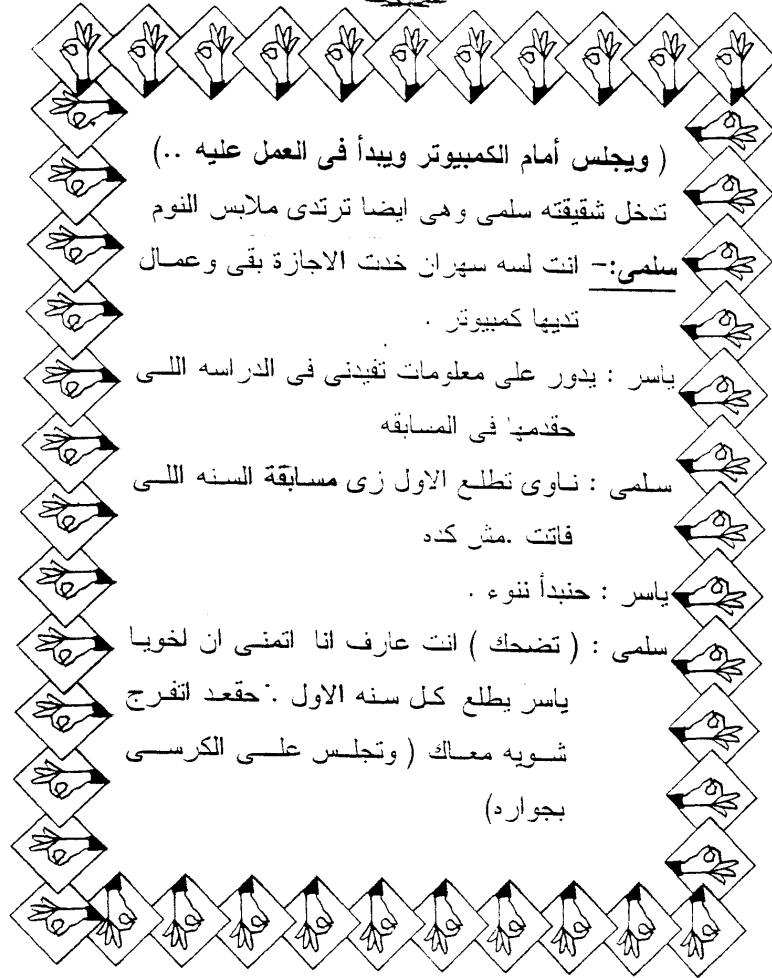 ( ويجلس أمام الكمبيوتر ويبدأ فى العمل عليه ..)
تدخل شقيقته سلمى وهى ايضا ترتدى ملابس النوم
سلمى:- انت لسه سهران خدت الاجازة بقى وعمال
تديها كمبيوتر .
ياسر : يدور على معلومات تفيدنى فى الدراسه اللى
حقدمها فى المسابقه
سلمى : ناوى تطلع الاول زى مسابقة السنه اللى
فاتت .مش كده
ياسر : حنبدأ ننوء .
سلمى : ( تضحك ) انت عارف انا اتمنى ان لخويا
ياسر يطلع كل سنه الاول . حقعد اتفرج
شويه معاك ( وتجلس على الكرسى
بجواره)